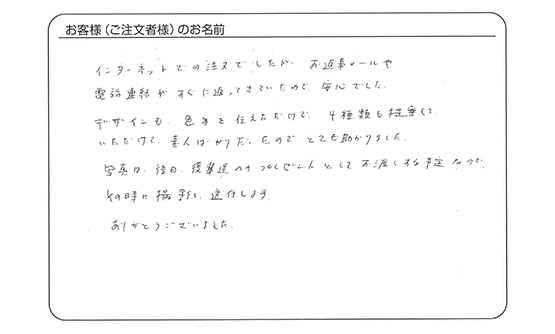 お客様（ご注文者様）のお名前
インターネットでの注文でしたが、お返事メールや
電話連絡がすぐに返ってきていたので、安心でした。
デザインも、色々と伝えただけで、4種類も提案して
いただけて、素人ばかりだったので とても助かりました。
写真は、後日、卒業生へのプレゼントとして お渡しする予定なので
その時に撮影し、送付します。
ありがとうございました。